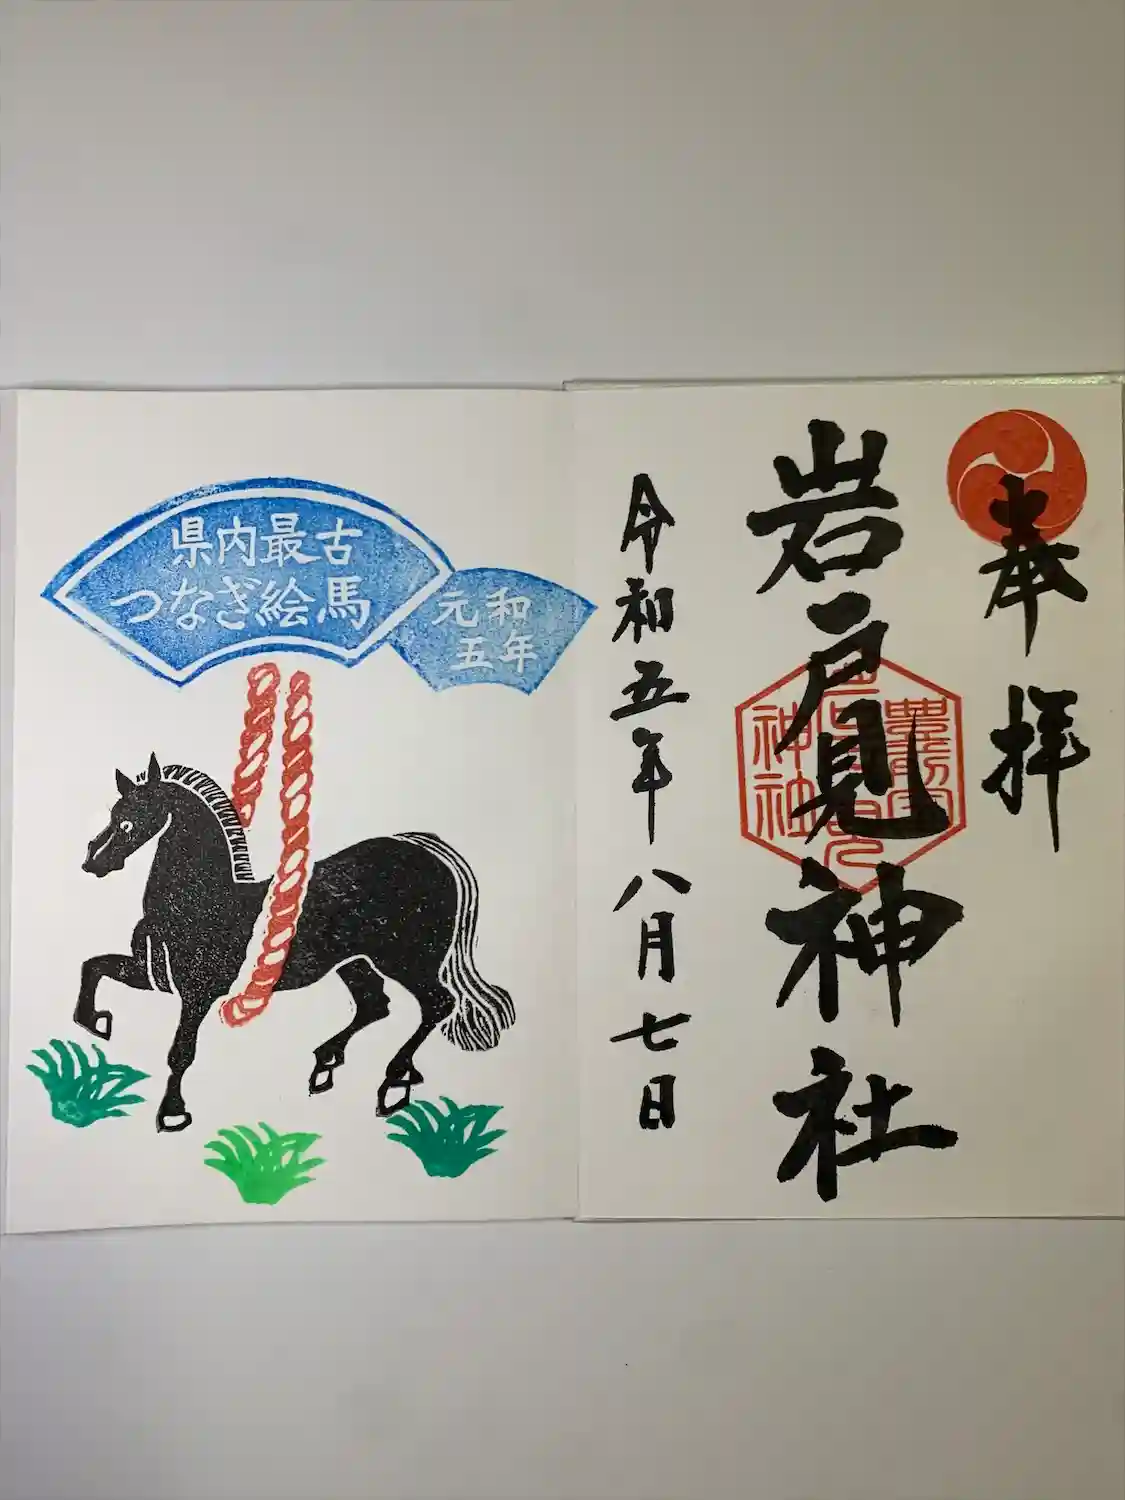 奉拝
岩戸見神社
令和五年八月七日
県内最古
つなぎ絵馬
元和
五年
神社